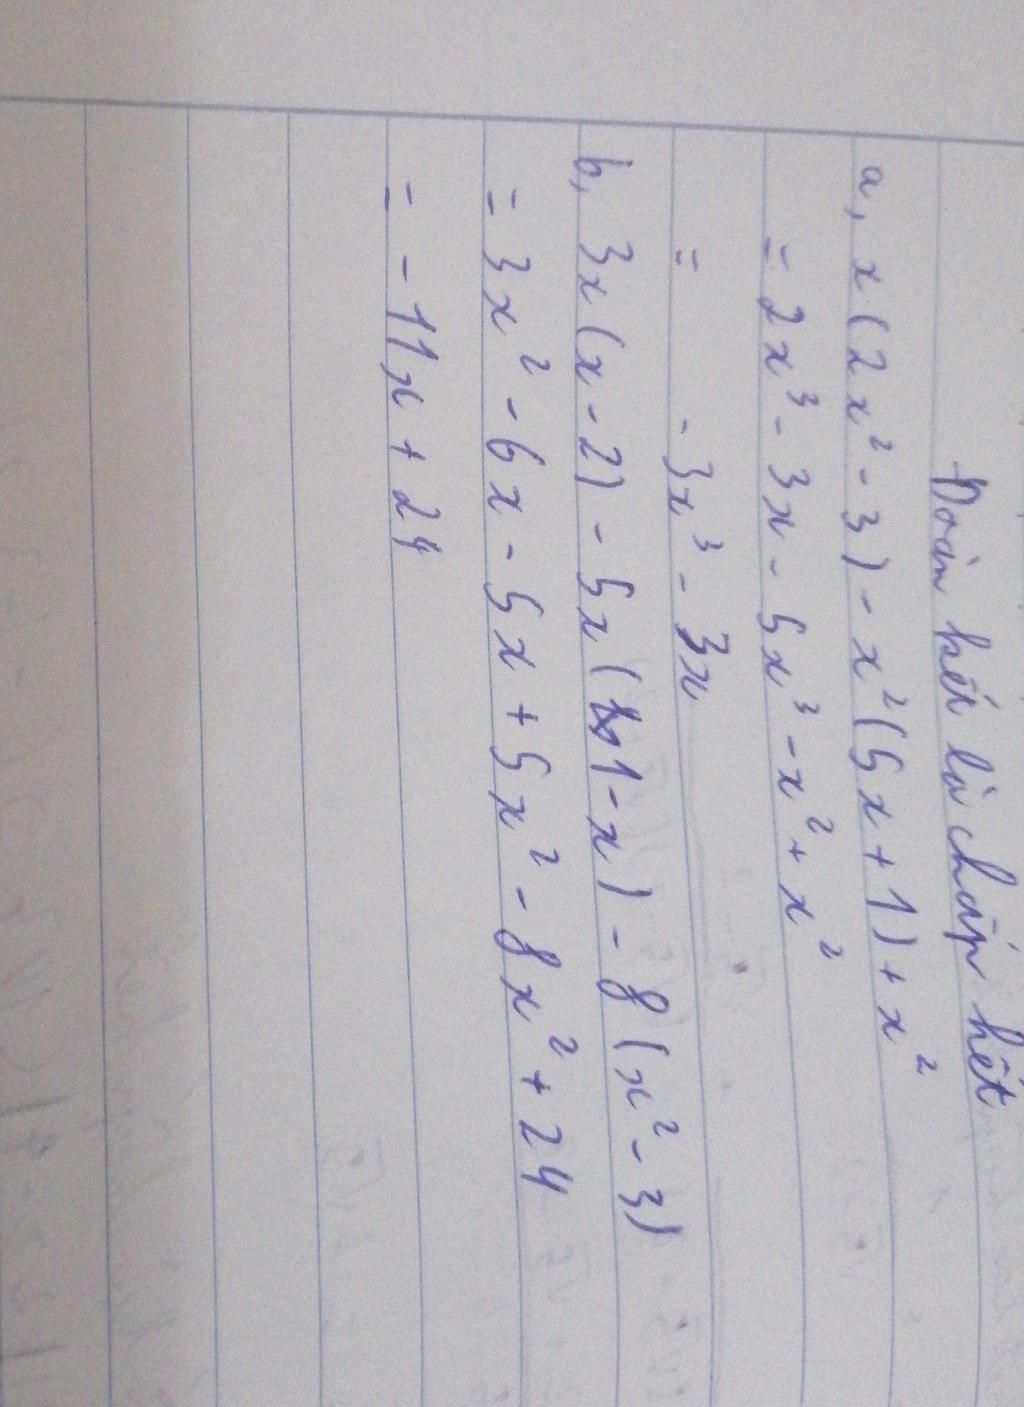 Đoàn kết là chấp hết
a, x(2x² - 3) - x²(5x + 1) + x²
= 2x³ - 3x - 5x³ - x² + x²
= - 3x³ - 3x
b, 3x(x - 2) - 5x(1 - x) - 8(x² - 3)
= 3x² - 6x - 5x + 5x² - 8x² + 24
= - 11x + 24